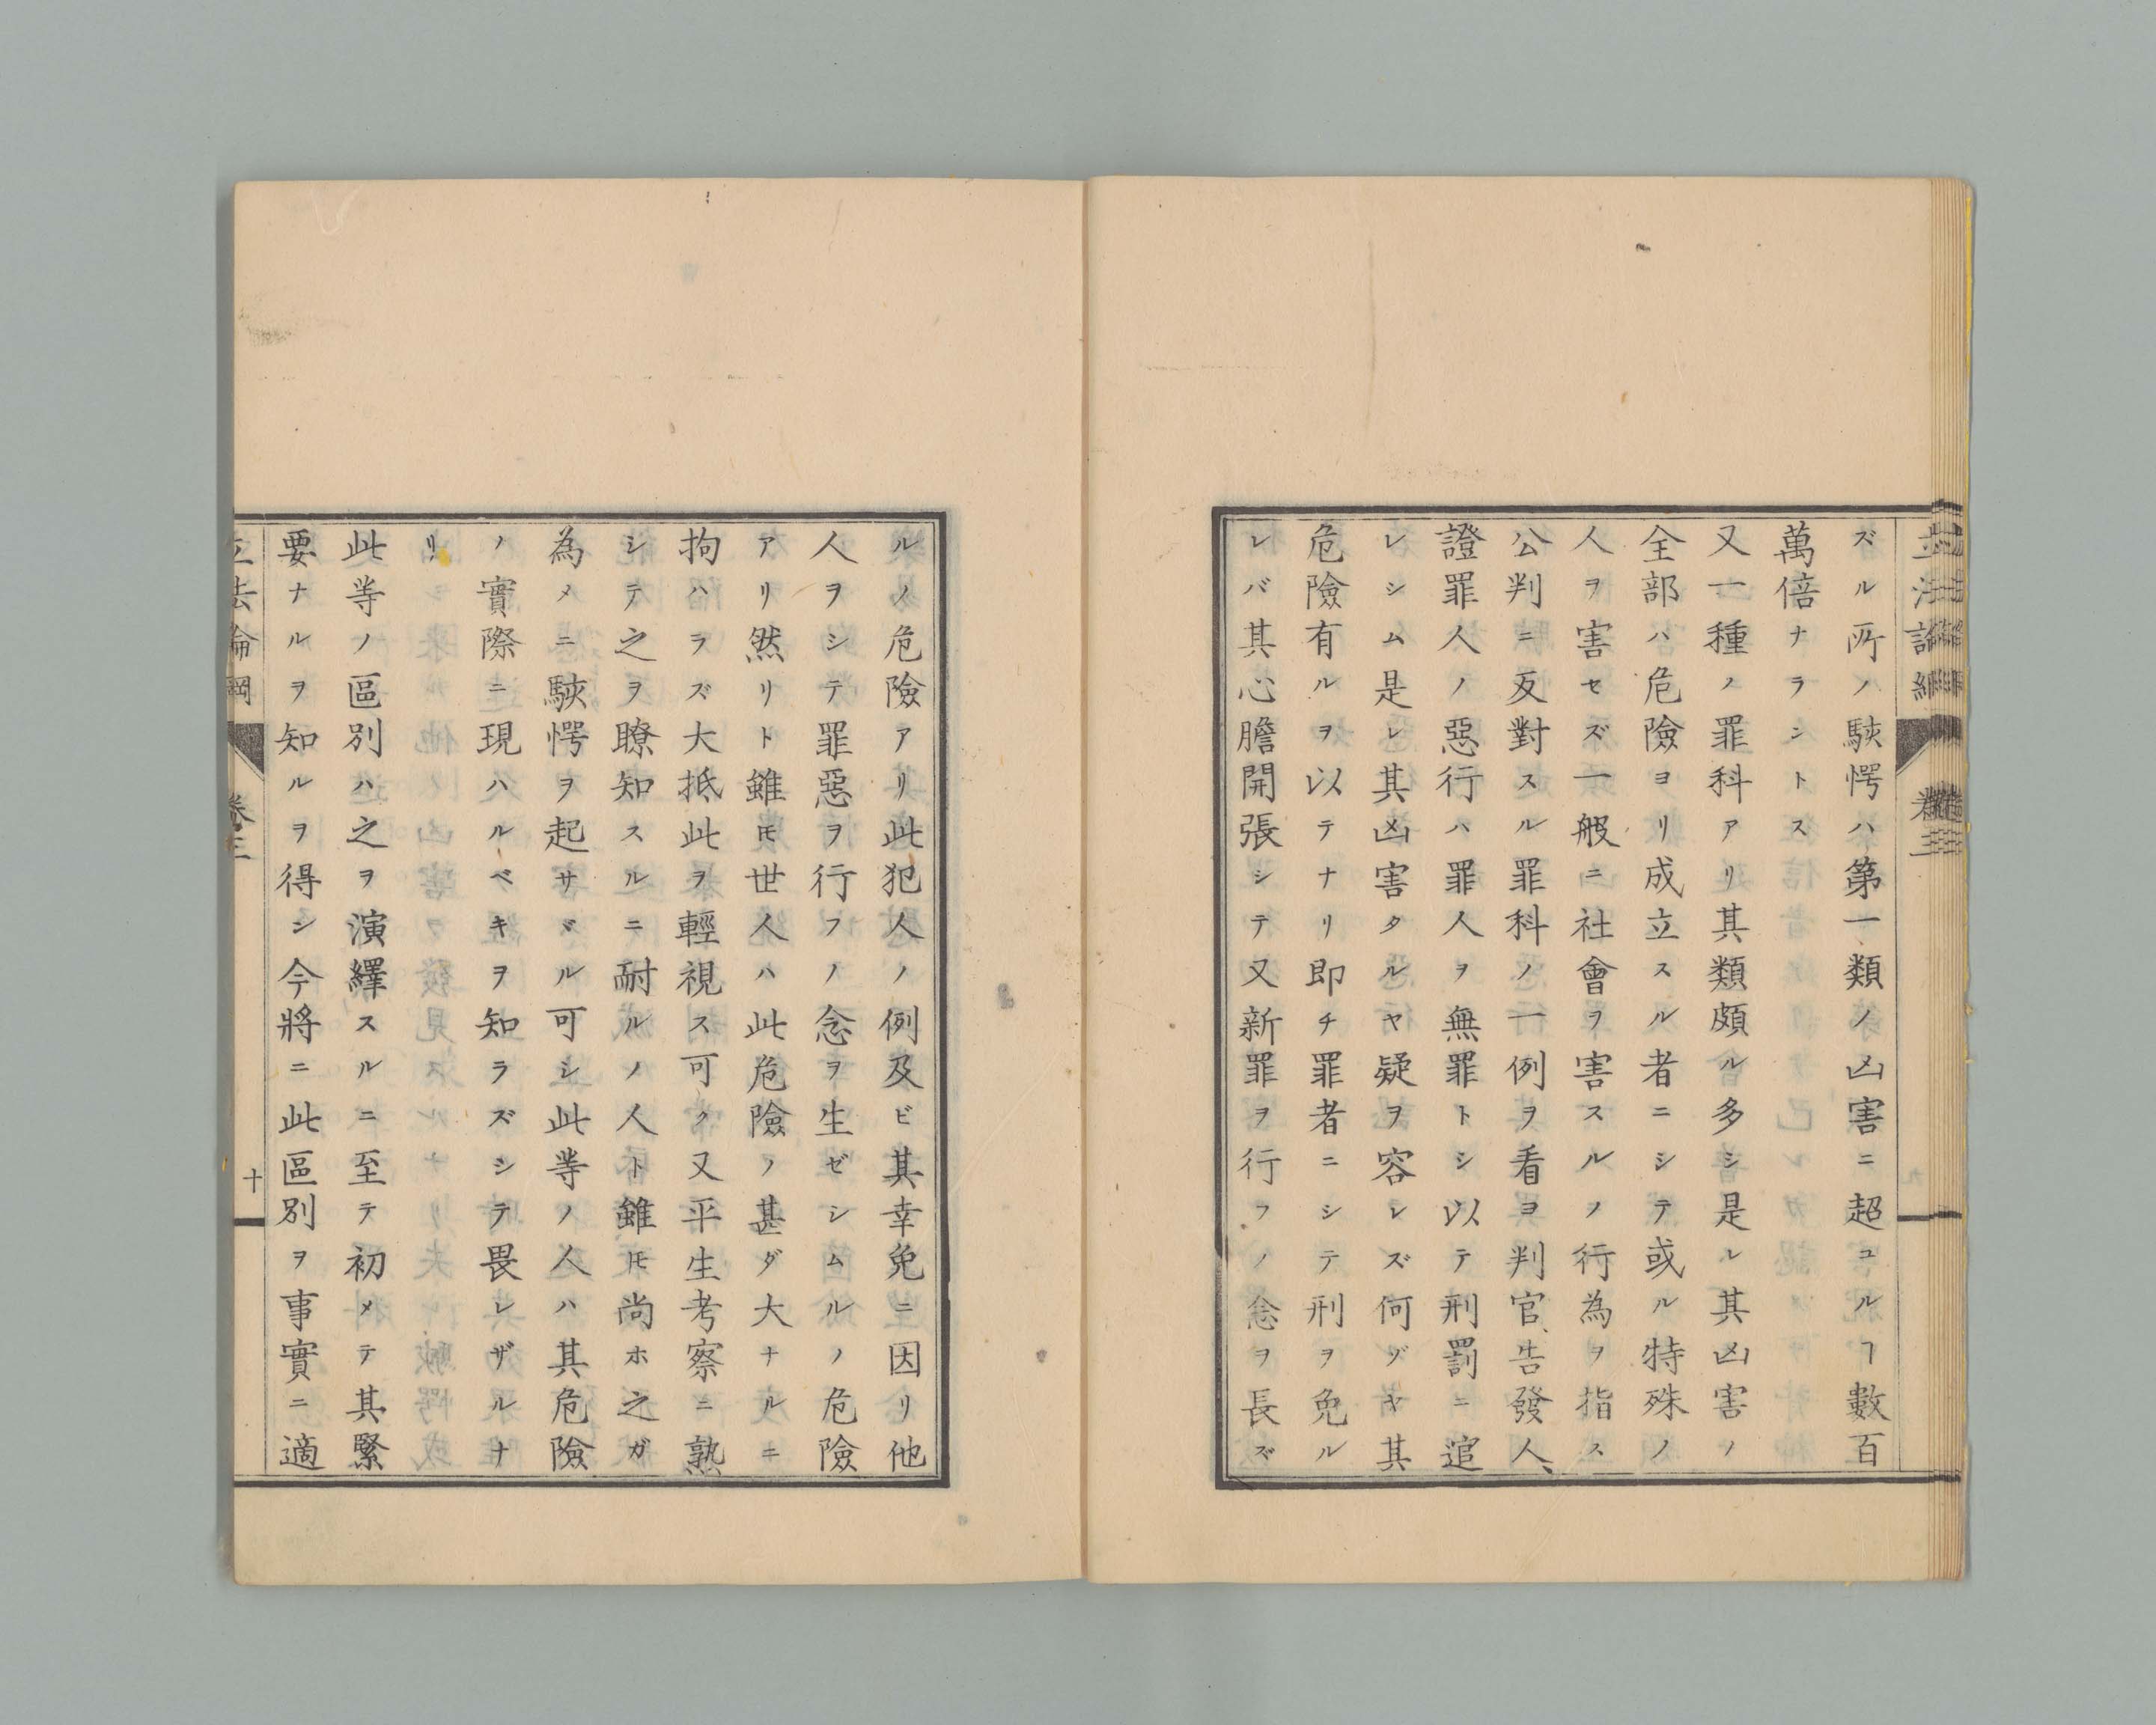 ズル所ノ駭愕ハ第一類ノ凶害ニ超ユルヿ數百
萬倍ナラシトス
又一種ノ罪科アリ其類頗ル多シ是レ其凶害ノ
全部ハ危險ヨリ成立スル者ニシテ或ル特殊ノ
人ヲ害セズ一般ニ社會ヲ害スルノ行為ヲ指ス
公判ニ反對スル罪科ノ一例ヲ看ヨ判官、告發人、
證罪人ノ惡行ハ罪人ヲ無罪トシ以テ刑罰ニ逭
レシム是レ其凶害タルヤ疑ヲ容レズ何ゾヤ其
危險有ルヲ以テナリ即チ罪者ニシテ刑ヲ免ル
レバ其心膽開張シテ又新罪ヲ行フノ念ヲ長ズ
ルノ危險アリ此犯人ノ例及ビ其幸免ニ因リ他
人ヲシテ罪惡ヲ行フノ念ヲ生ゼシムルノ危險
アリ然リト雖𪜈世人ハ此危險ノ甚ダ大ナルニ
拘ハラズ大抵此ヲ輕視ス可ク又平生考察ニ熟
シテ之ヲ瞭知スルニ耐ルノ人ト雖𪜈尚ホ之ガ
為メニ駭愕ヲ起サヾル可シ此等ノ人ハ其危險
ノ實際ニ現ハルベキヲ知ラズシテ畏レザルナ
リ
此等ノ區別ハ之ヲ演繹スルニ至テ初メテ其緊
要ナルヲ知ルヲ得シ今將ニ此區別ヲ事實ニ適
立法論綱 卷三 十